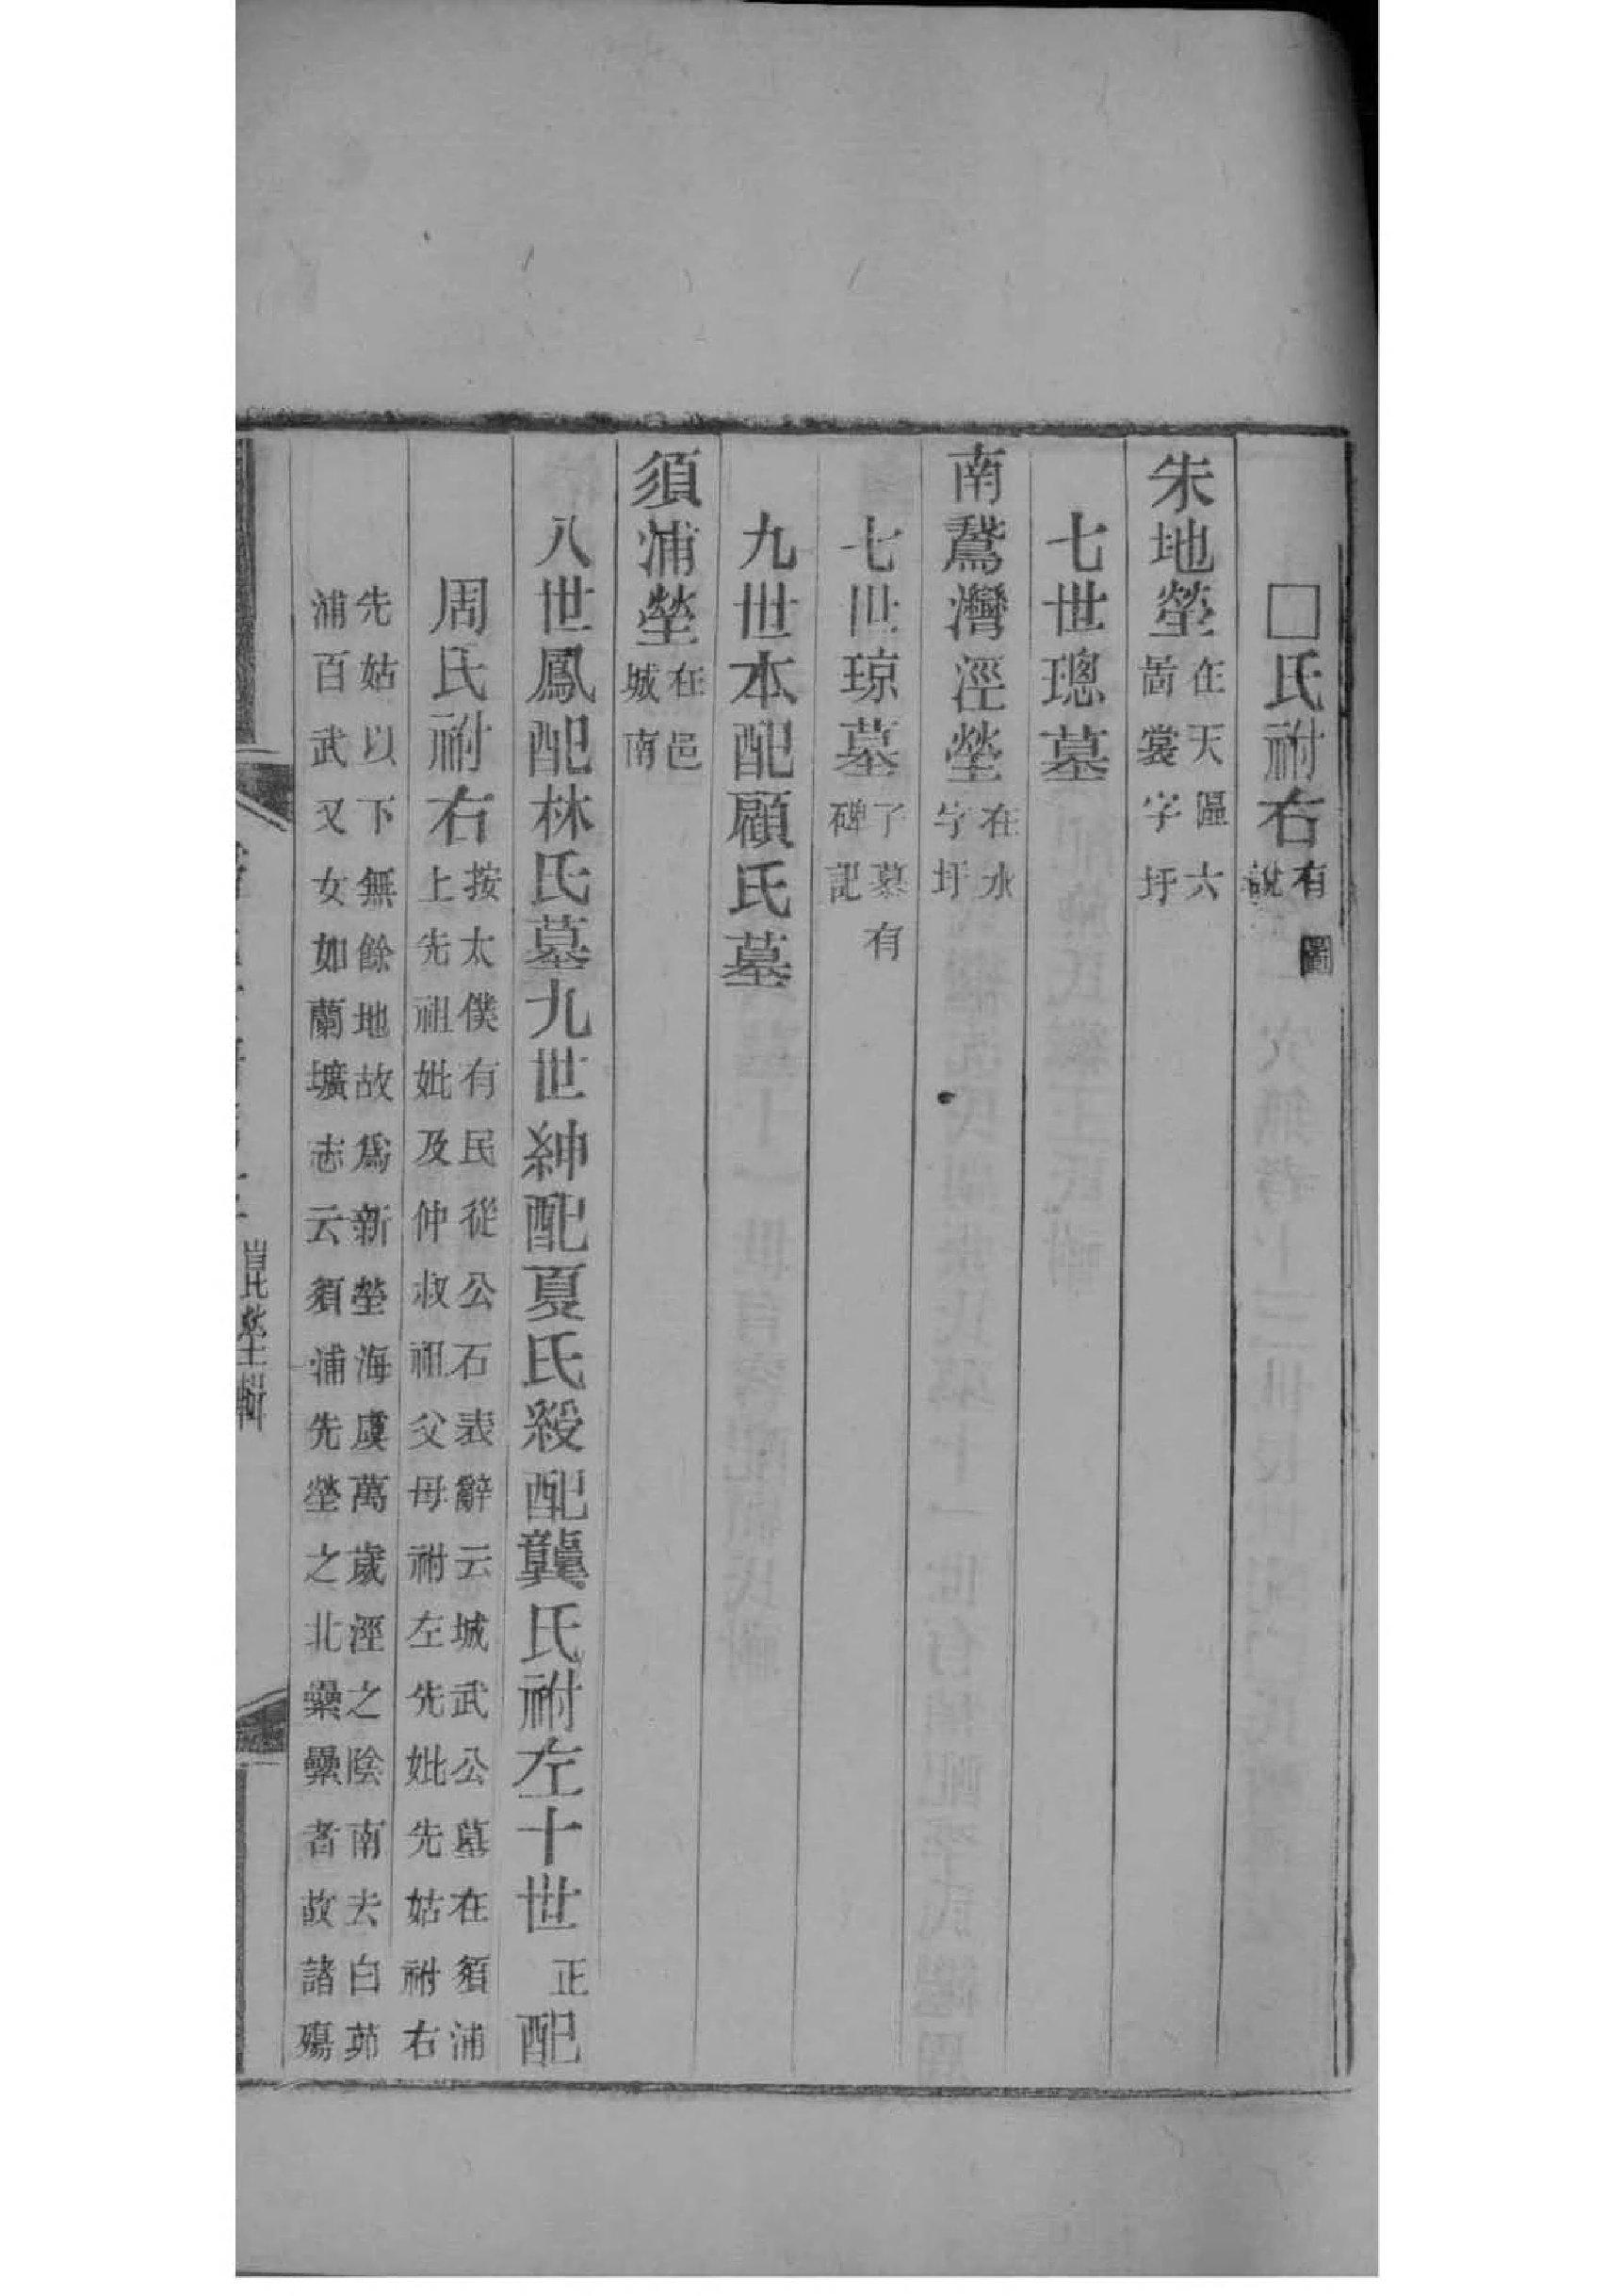 □氏祔右有圖說
朱地塋在天區六啚裳字圩
七世璁墓
南鵞灣涇塋在水字圩
七世琼墓了墓有碑記
九世本配顧氏墓
須浦塋在邑城南
八世鳳配林氏墓九世紳配夏氏綬配龔氏祔左十世正配
周氏祔右按太僕有民從公石表辭云城武公墓在須浦上先祖妣及仲叔祖父母祔左先妣先姑祔右
先姑以下無餘地故為新塋海虞萬歲涇之陰南去白茆浦百武又女如蘭壙志云須浦先塋之北纍纍者故諸殤